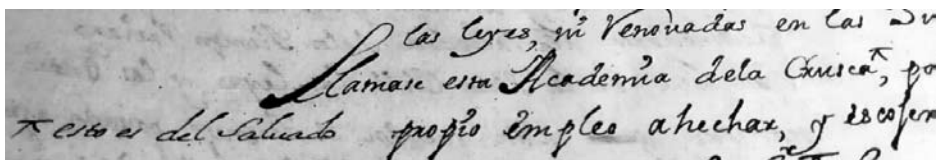 las leyes, ni Venovadas en las
Llamase esta Academia dela Crusca ⊼, po
⊼ esto es del Saluado propio empleo ahechar, y escojer